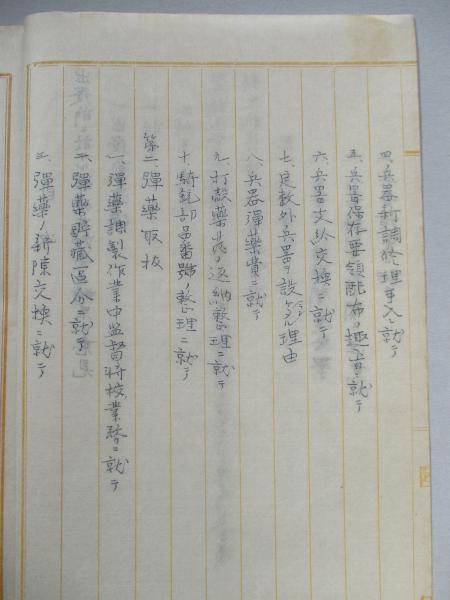 四、兵器新調修理手入ニ就テ
五、兵器保存要領配布ノ趣旨ニ就テ
六、兵器支給交換ニ就テ
七、定数外兵器ヲ設ケタル理由
八、兵器彈藥費ニ就テ
九、打殻藥莢ノ返納整理ニ就テ
十、騎銃部品番號ノ整理ニ就テ
第二、彈藥取扱
一、彈藥調製作業中監督将校業務ニ就テ
二、彈藥貯藏區分ニ就テ
三、彈藥ノ新陳交換ニ就テ